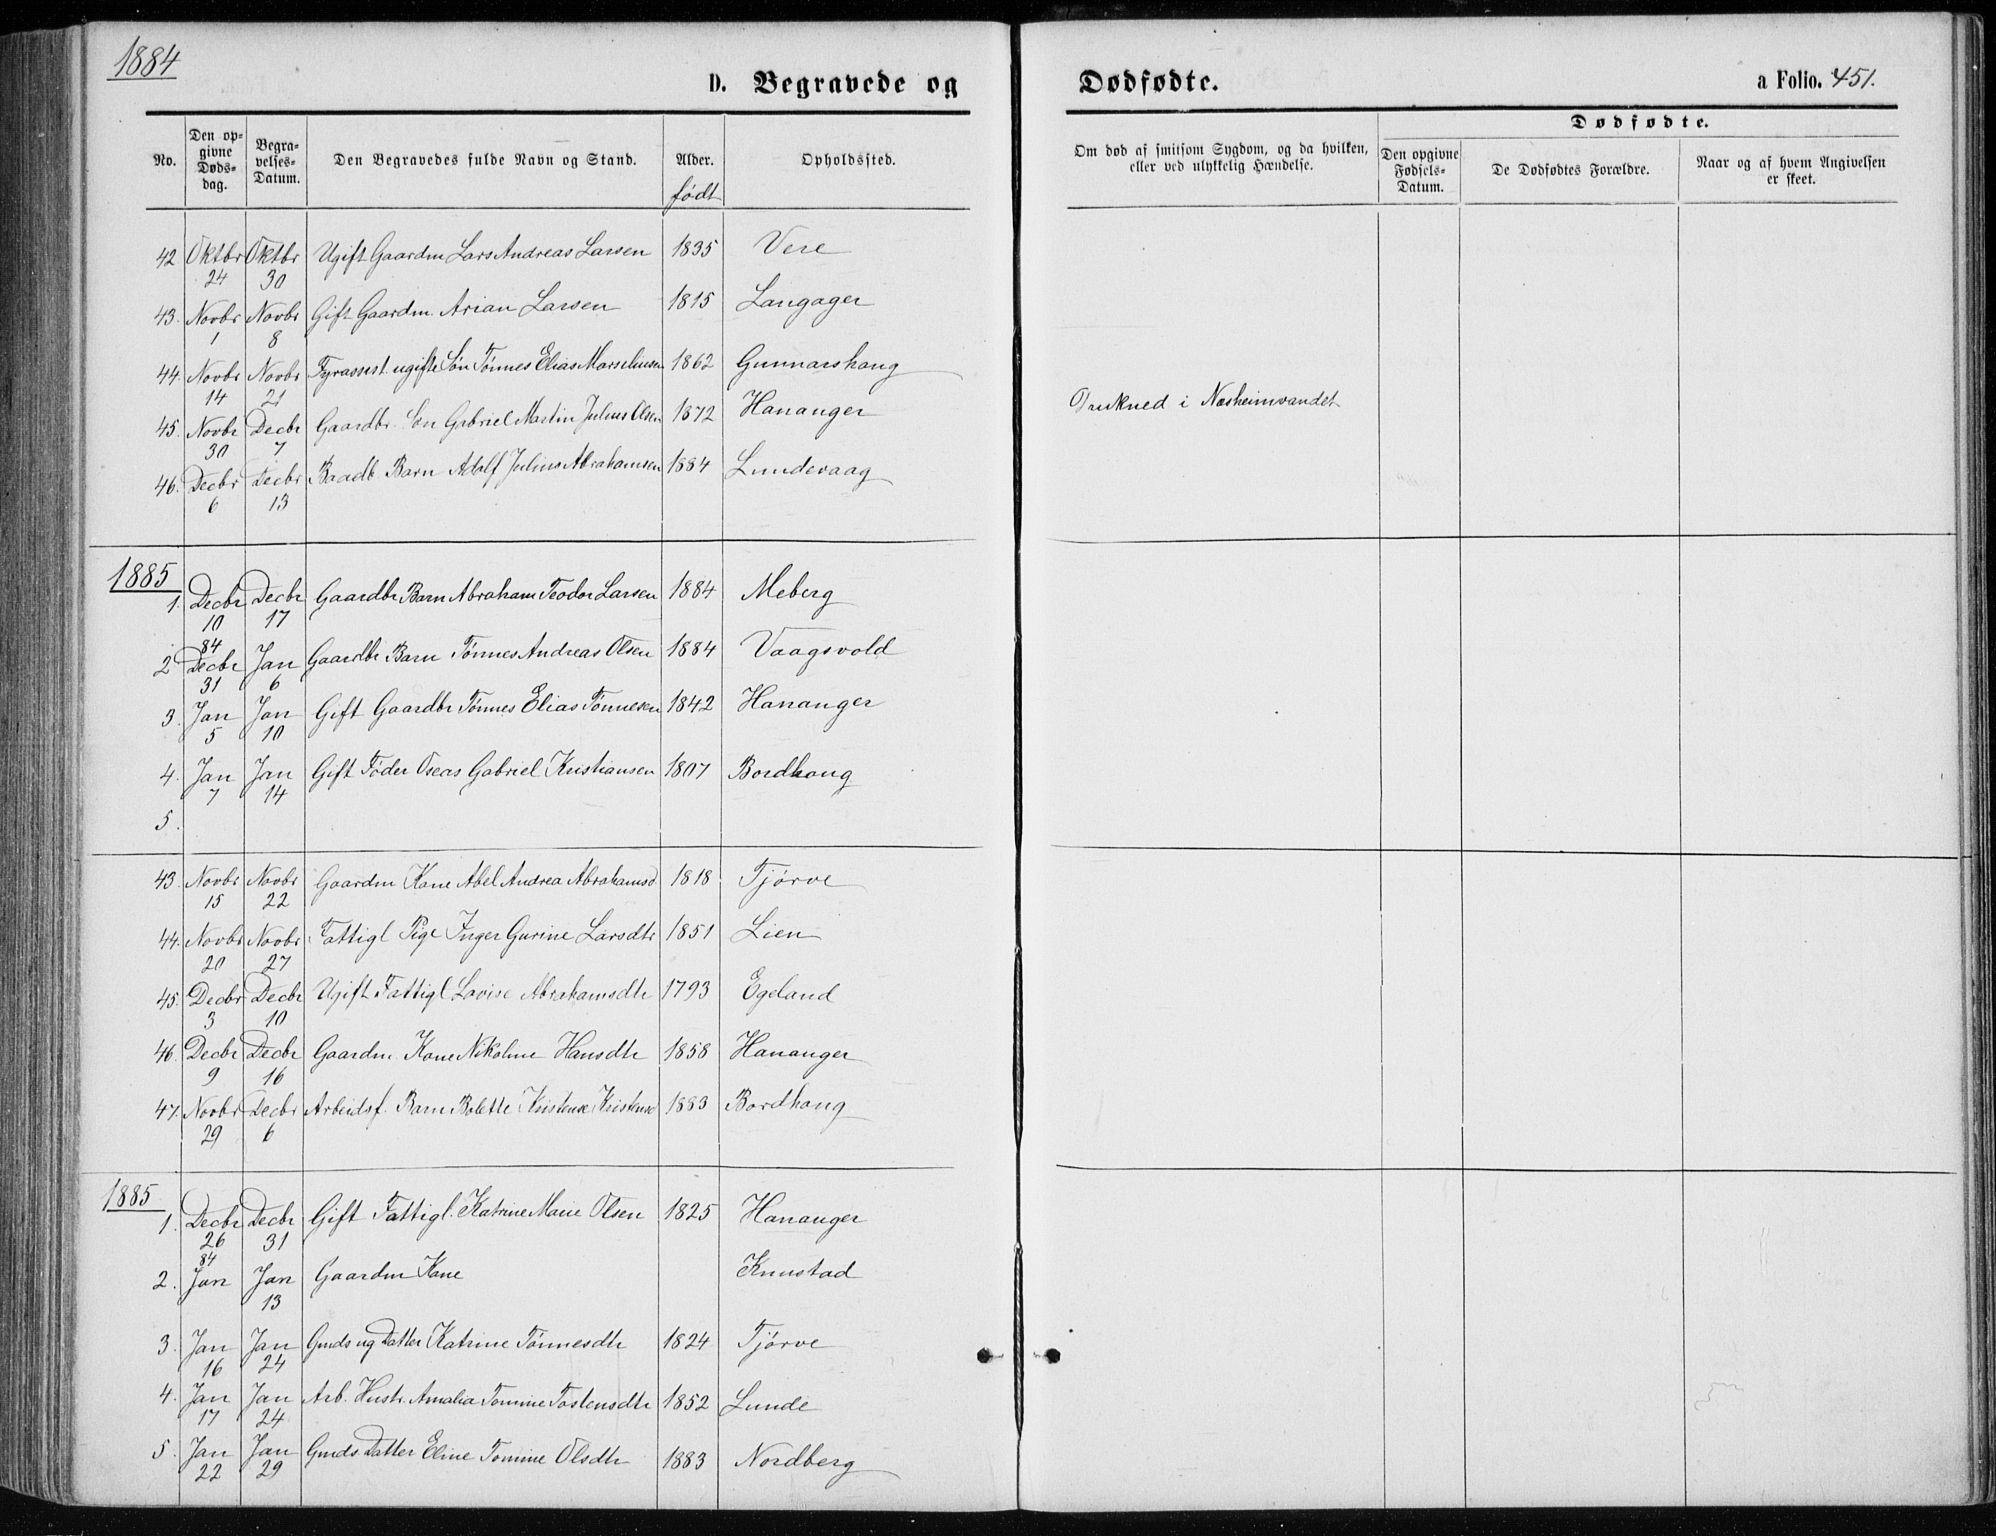 1884
D. Begravede og Dødfødte. a Folio. 451.
No. Den opgivne Dødsdag. Begravelses-Datum. Den Begravedes fulde Navn og Stand. Alder. født Opholdssted. Om død af smitsom Sygdom, og da hvilken, eller ved ulykkelig Hændelse. Dødfødte. Den opgivne Fødsels-Datum. De Dødfødtes Forældre. Naar og af hvem Angivelsen er skeet.
42 Oktbr 24 Oktbr 30 Ugift Gaardm Lars Andreas Larsen 1835 Vere
43. Novbr 1 Novbr 8 Gift Gaardm. Arian Larsen 1815 Langager
44. Novbr 14 Novbr 21 Fyrassist. ugifte Søn Tønnes Elias Marseliusen 1862 Gunnarshaug
45. Novbr 30 Decbr 7 Gaardbr. Søn Gabriel Martin Julius Olsen 1872 Hananger Drukned i Næsheimvandet
46. Decbr 6 Decbr 13 Baadb. Barn Adolf Julius Abrahamsen 1884 Lundevaag
1885
1. Decbr 10 84 Decbr 17 Gaardbr Barn Abraham Teodor Larsen 1884 Meberg
2 Decbr 31 Jan 6 Gaardbr Barn Tønnes Andreas Olsen 1884 Vaagsvold
3. Jan 5 Jan 10 Gift Gaardbr Tønnes Elias Tønnesen 1842 Hananger
4. Jan 7 Jan 14 Gift Føder Oseas Gabriel Kristiansen 1807 Bordhaug
5.
43. Novbr 15 Novbr 22 Gaardm Kone Abel Andrea Abrahamsd 1818 Tjørve
44. Novbr 20 Novbr 27 Fattigl Pige Inger Gurine Larsdtr 1851 Lien
45. Decbr 3 Decbr 10 Ugift Fattigl Lovise Abrahamsdtr 1793 Egeland
46. Decbr 9 Decbr 16 Gaardm. Kone Nikoline Hansdtr 1858 Hananger
47. Novbr 29 Decbr 6 Arbeidsf. Barn Bolette Kristense Kristensd 1883 Bordhaug
1885
1. Decbr 26 84 Decbr 31 Gift Fattigl. Katrine Marie Olsen 1825 Hananger
2. Jan Jan 13 Gaardm Kone Knustad
3. Jan 16 Jan 24 Gmds ug Datter Katrine Tønnesdtr 1824 Tjørve
4. Jan 17 Jan 24 Arb. Hustr. Amalia Tomine Tostensdtr 1852 Lunde
5. Jan 22 Jan 29 Gmds Datter Eline Tomine Olsdtr 1883 Nordberg